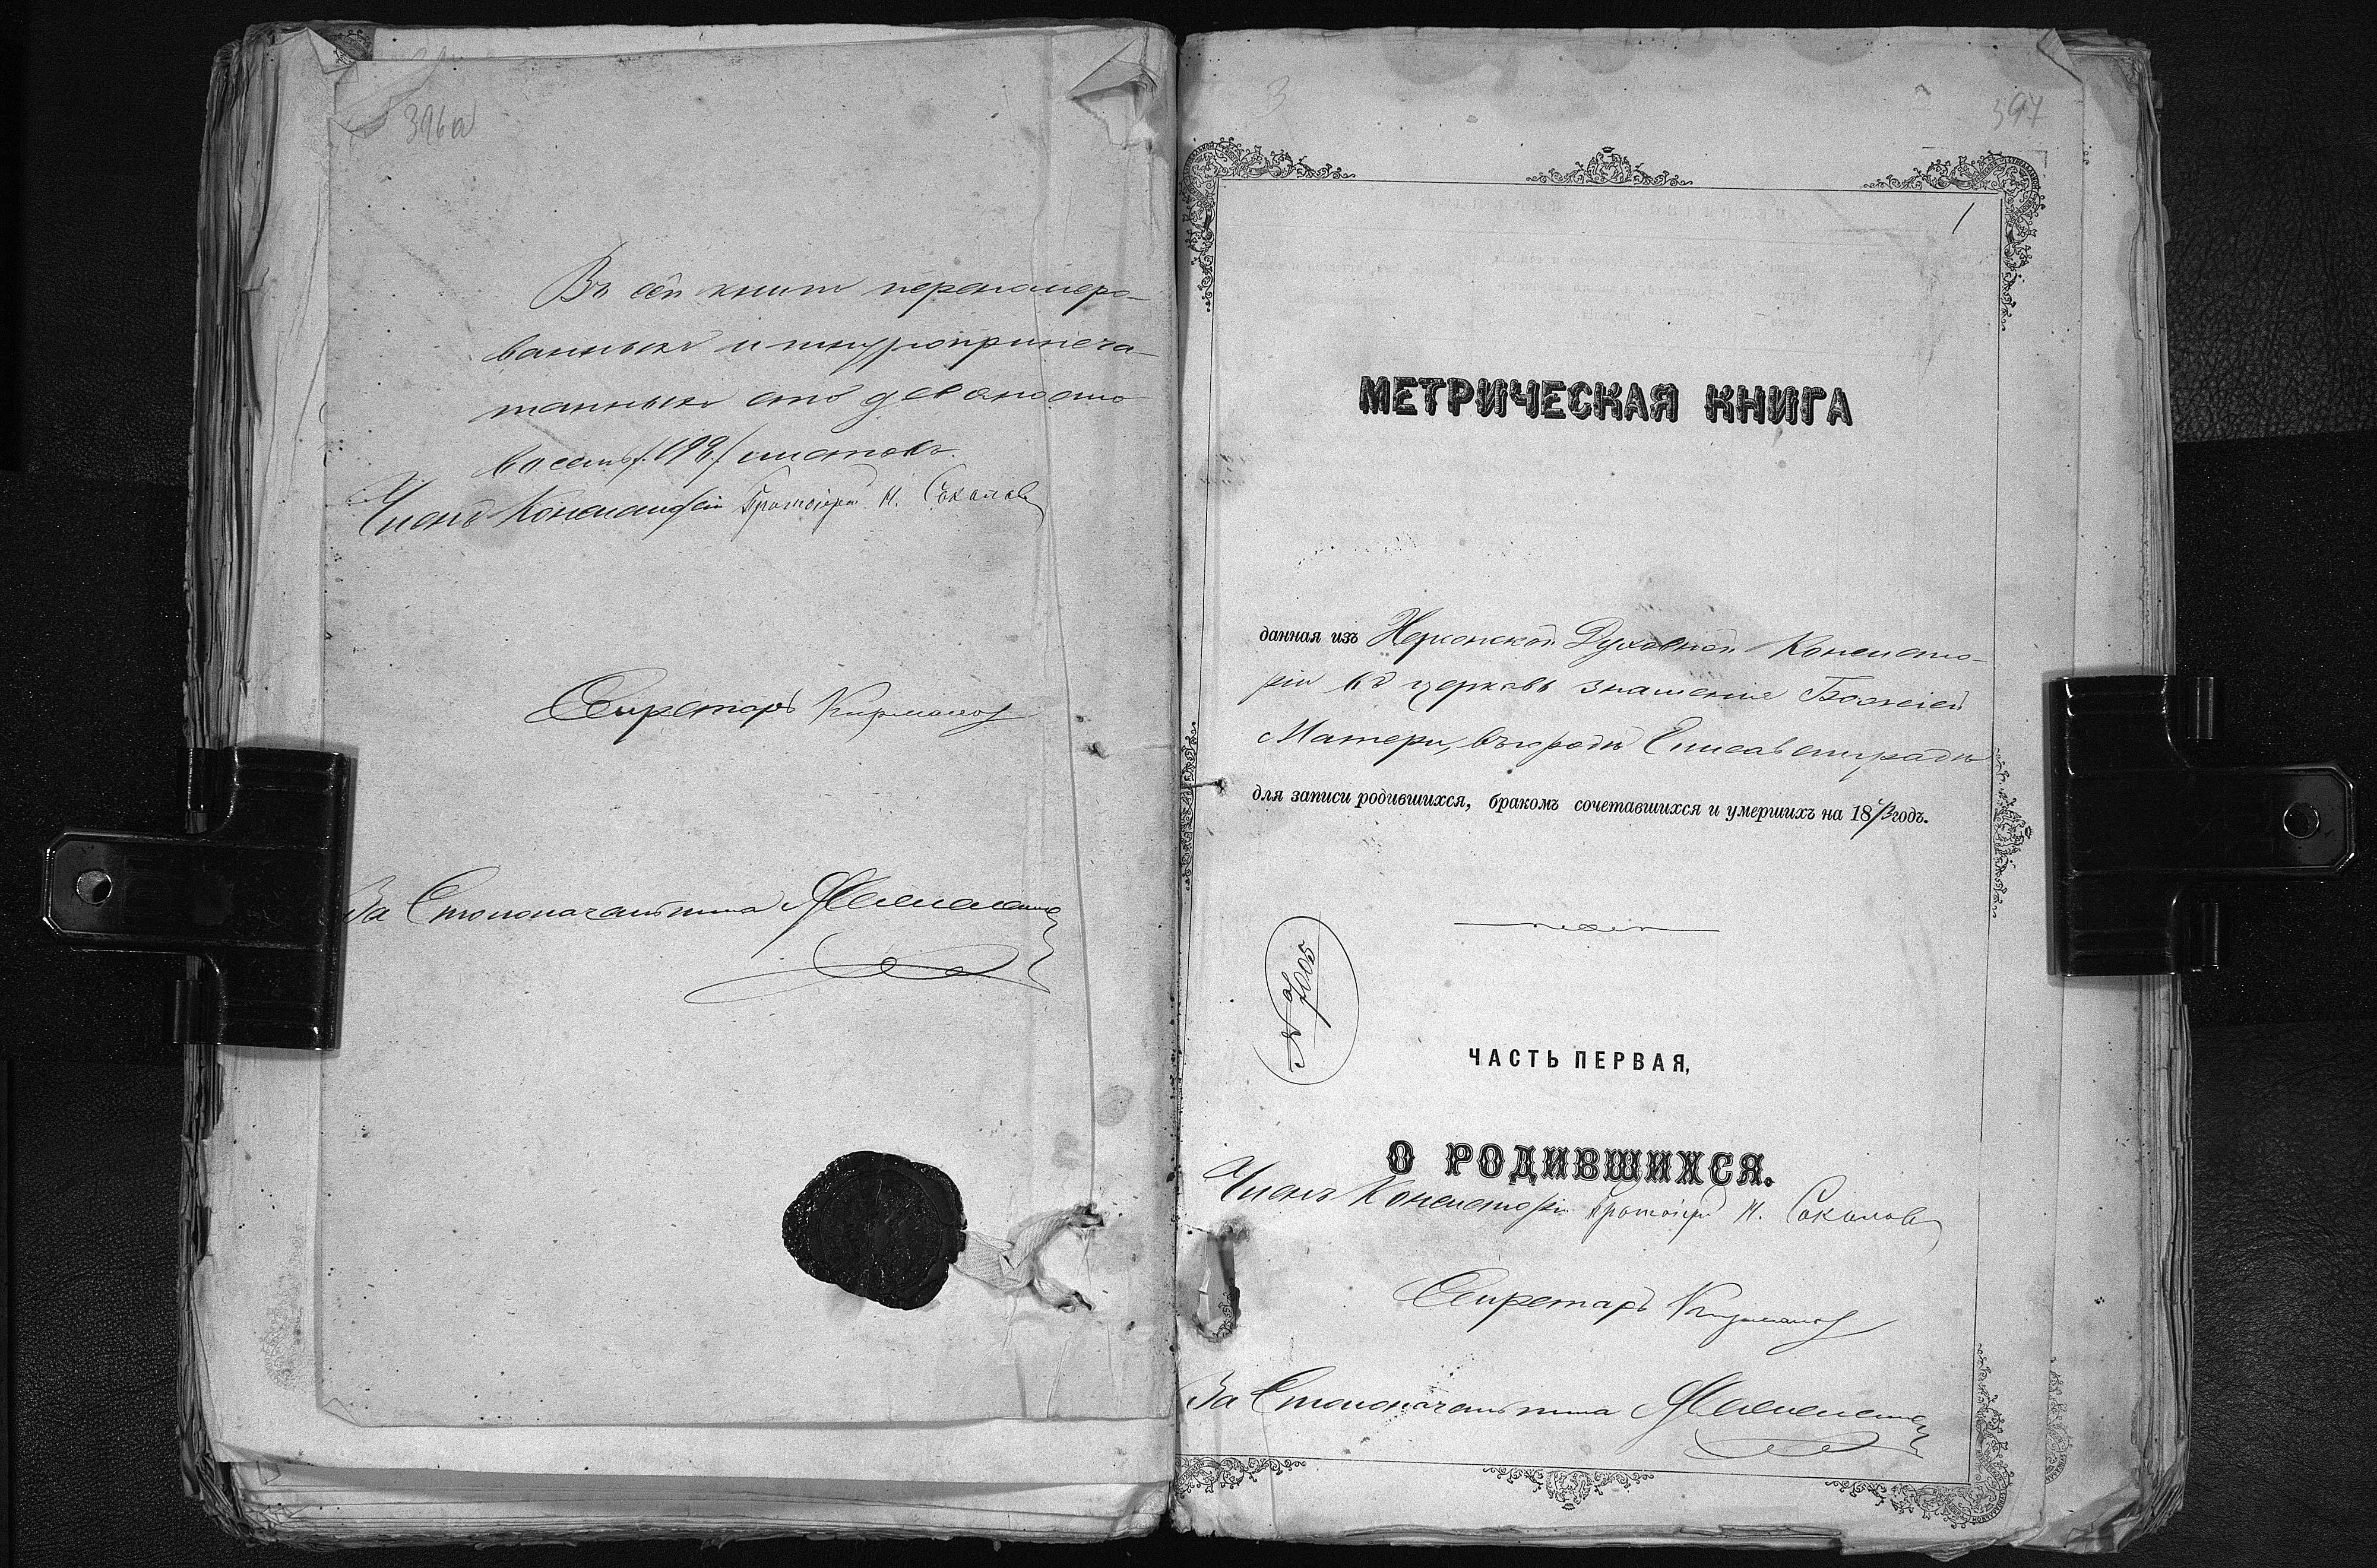 396а
Въ сей книгѣ перенумеро-
ванныхъ и шнуроприпеча-
танныхъ сто девяносто
восемь /198/ листовъ.
Членъ Консисторіи Протоіерей М. Соколовъ
Секретарь
За Столоначальника
3
397
1
МЕТРИЧЕСКАЯ КНИГА
данная изъ Херсонской Духовной Консисто-
ріи въ церковь Знаменія Божіей
Матери, въ городѣ Елисаветградѣ
для записи родившихся, бракомъ сочетавшихся и умершихъ на 18 годъ.
№ 7005
ЧАСТЬ ПЕРВАЯ,
О РОДИВШИХСЯ.
Членъ Консисторіи Протоіерей М. Соколовъ
Секретарь
За Столоначальника